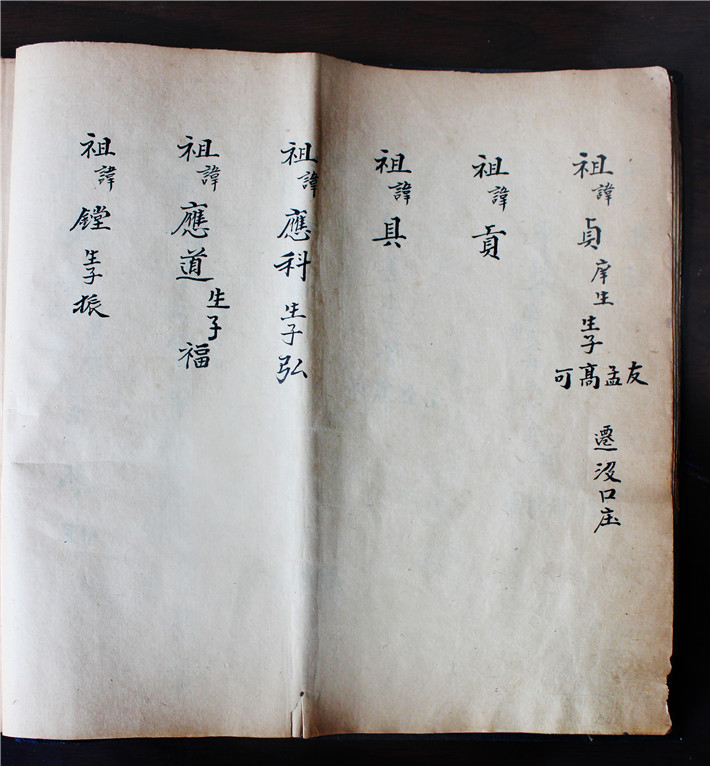 祖諱貞庠生生子友孟高可遷没口庄
祖諱貢
祖諱具
祖諱應科生子弘
祖諱應道生子福
祖諱鏜生子振